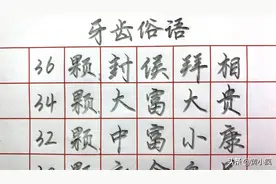 牙齿俗语
36颗封侯拜相
34颗大富大贵
32颗中富小康